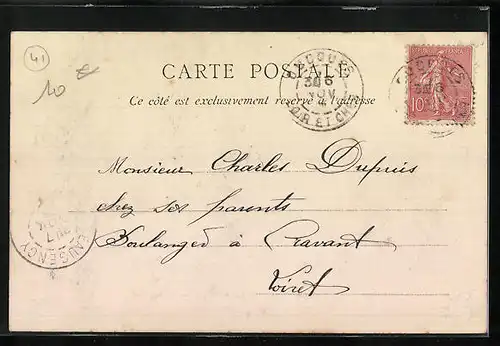 41
10
CARTE POSTALE
Ce côté est exclusivement réservé à l'adresse
30 6
NOV
LOIR ET CHER
10
Monsieur Charles Dupuis
chez ses parents
Boulanger à Cravant
Loiret
BEAUGENCY